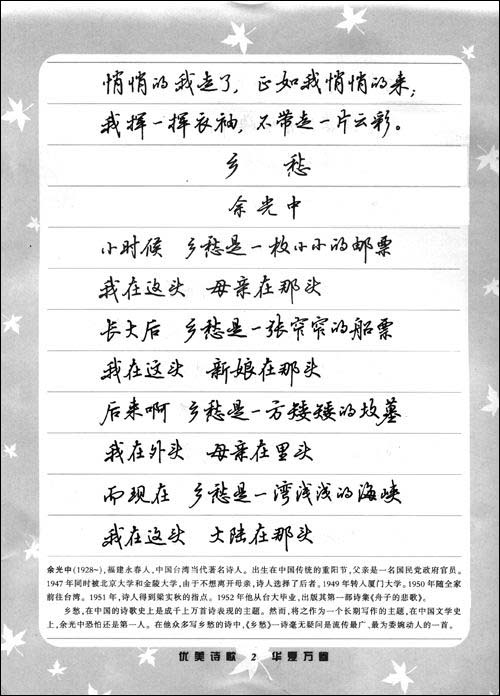 悄悄的我走了，正如我悄悄的来；
我挥一挥衣袖，不带走一片云彩。
乡 愁
余光中
小时候 乡愁是一枚小小的邮票
我在这头 母亲在那头
长大后 乡愁是一张窄窄的船票
我在这头 新娘在那头
后来啊 乡愁是一方矮矮的坟墓
我在外头 母亲在里头
而现在 乡愁是一湾浅浅的海峡
我在这头 大陆在那头
余光中(1928~)，福建永春人、中国台湾当代著名诗人。出生在中国传统的重阳节，父亲是一名国民党政府官员。
1947年同时被北京大学和金陵大学，由于不想离开母亲，诗人选择了后者。1949年转入厦门大学。1950年随全家
前往台湾。1951年，诗人得到梁实秋的指点。1952年他从台大毕业，出版其第一部诗集《舟子的悲歌》。
乡愁，在中国的诗歌史上是成千上万首诗表现的主题。然而，将之作为一个长期写作的主题，在中国文学史
上，余光中恐怕还是第一人。在他众多写乡愁的诗中，《乡愁》一诗毫无疑问是流传最广、最为委婉动人的一首。
优美诗歌 2 华夏万卷